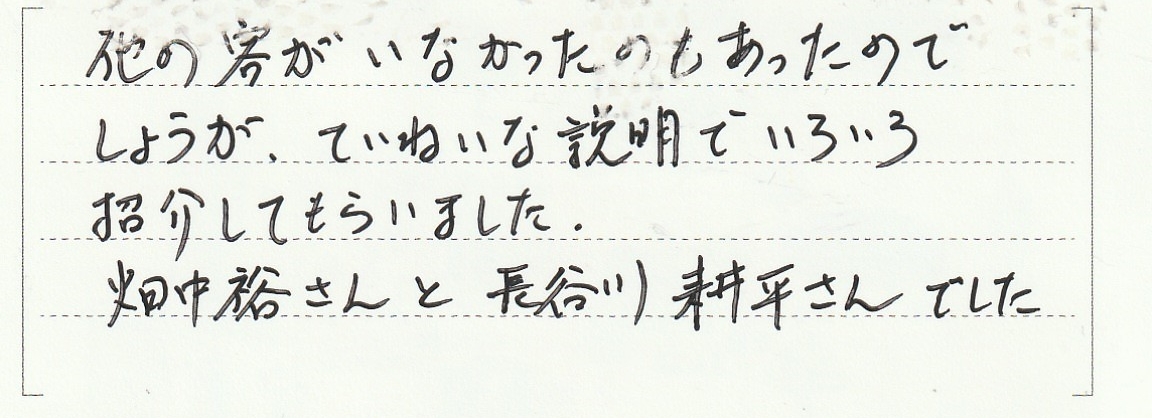 他の客がいなかったのもあったので
しょうが、ていねいな説明でいろいろ
紹介してもらいました.
畑中裕さんと長谷川耕平さんでした